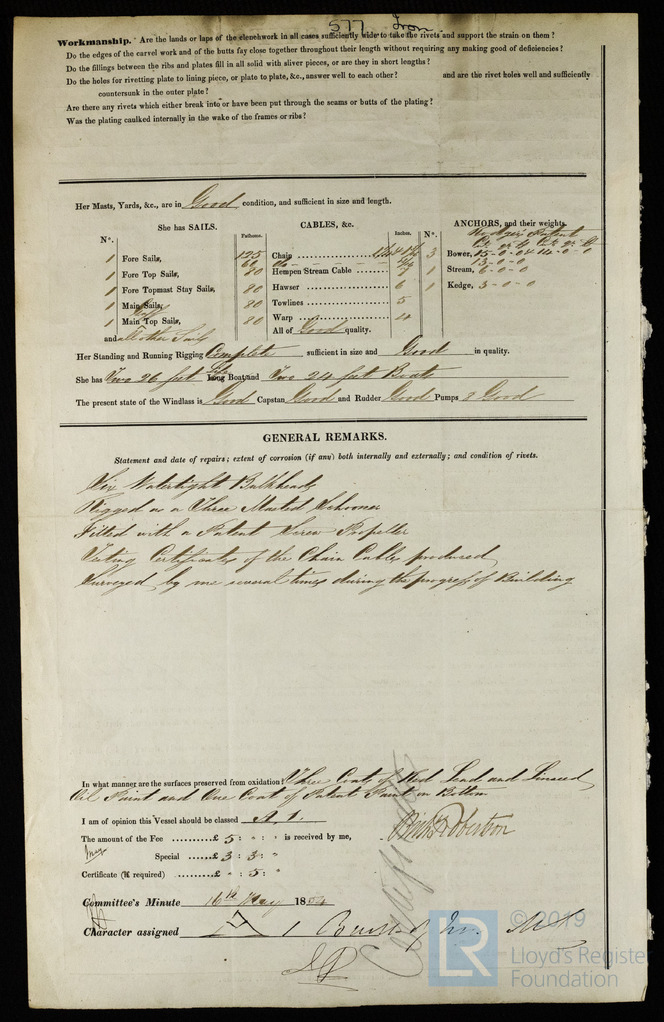 577 Iron
Workmanship. Are the lands or laps of the clenchwork in all cases sufficiently wide to take the rivets and support the strain on them?
Do the edges of the carvel work and of the butts fay close together throughout their length without requiring any making good of deficiencies?
Do the fillings between the ribs and plates fill in all solid with sliver pieces, or are they in short lengths?
Do the holes for rivetting plate to lining piece, or plate to plate, &c., answer well to each other? and are the rivet holes well and sufficiently
countersunk in the outer plate?
Are there any rivets which either break into or have been put through the seams or butts of the plating?
Was the plating caulked internally in the wake of the frames or ribs?
Her Masts, Yards, &c., are in Good condition, and sufficient in size and length.
She has SAILS. CABLES, &c. ANCHORS, and their weights.
N°. Fathoms. Inches. N°.
1 Fore Sails, 125 Chain 3 Bower, 15-0-0
13-0-0
1 Fore Top Sails, 80 Hempen Stream Cable 7 1 Stream, 6-0-0
1 Fore Topmast Stay Sails, 80 Hawser 6 1 Kedge, 3-0-0
1 Main Sails, 80 Towlines 5
1 Main Top Sails, 80 Warp 4
and all other Sails All of Good quality.
Her Standing and Running Rigging Complete sufficient in size and Good in quality.
She has Two 26 feet Life Long Boat and Two 24 feet Boats
The present state of the Windlass is Good Capstan Good and Rudder Good Pumps 3 Good
GENERAL REMARKS.
Statement and date of repairs; extent of corrosion (if any) both internally and externally; and condition of rivets.
Six Watertight Bulkheads
Rigged as a Three Masted Schooner
Fitted with a Patent Screw Propeller
Testing Certificates of the Chain Cables produced
Surveyed by me several times during the progress of Building
In what manner are the surfaces preserved from oxidation? Three Coats of Red Lead and Linseed
Oil Paint and One Coat of Patent Paint on Bottom
I am of opinion this Vessel should be classed A. 1.
The amount of the Fee ..........£ 5 : " : " is received by me,
Special ......£ 3 : 3 : "
Certificate (if required) ......£ " : 5 : "
Committee's Minute 16th May 1854
Character assigned A 1
© 2019
LR
Lloyd's Register
Foundation